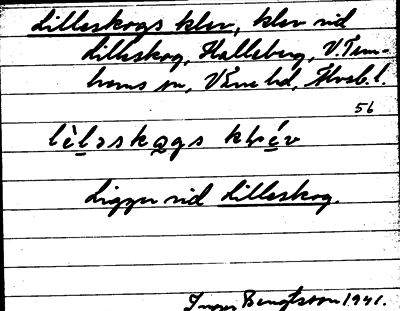 Lilleskogs klev, klev vid
Lilleskog, Hallsberg, V. Tun-
hems sn, Väne hd, Älvsb. l.
56
lè̀l̠əsko̠gs kle̠v
Ligger vid Lilleskog.
Inger Bengtsson 1941.